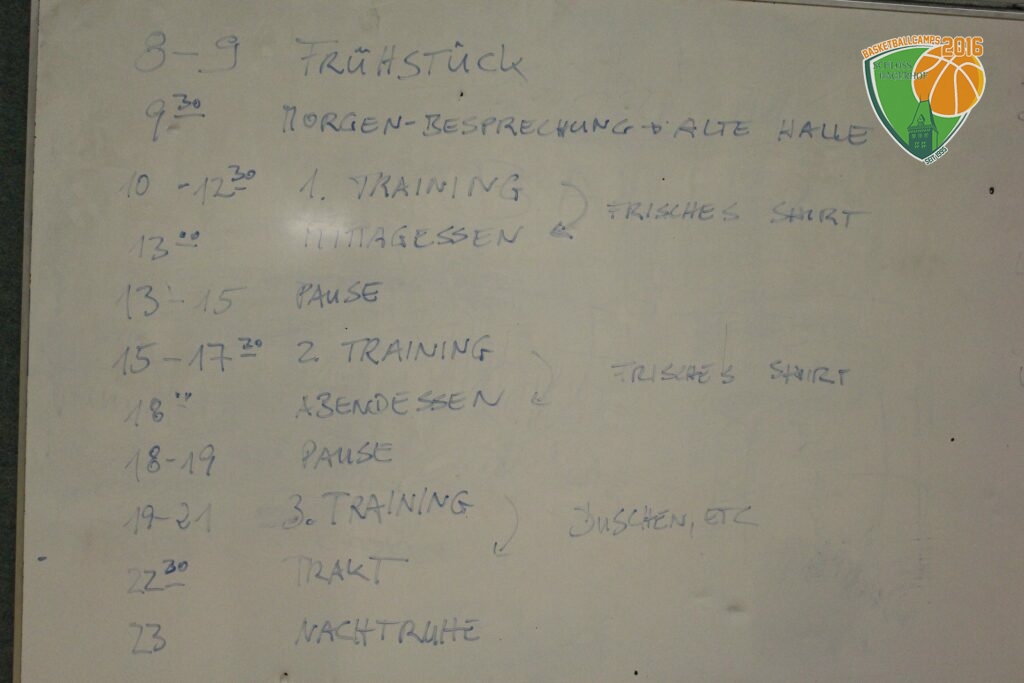 BASKETBALLCAMPS 2016
SCHLOSS
HAGERHOF
SEIT 1995
8-9 FRÜHSTÜCK
9 30 MORGEN-BESPRECHUNG → ALTE HALLE
10 - 12 30 1. TRAINING
FRISCHES SHIRT
13 00 MITTAGESSEN
13-15 PAUSE
15-17 30 2. TRAINING
FRISCHES SHIRT
18 00 ABENDESSEN
18-19 PAUSE
19-21 3. TRAINING
DUSCHEN, ETC
22 30 TRAKT
23 NACHTRUHE